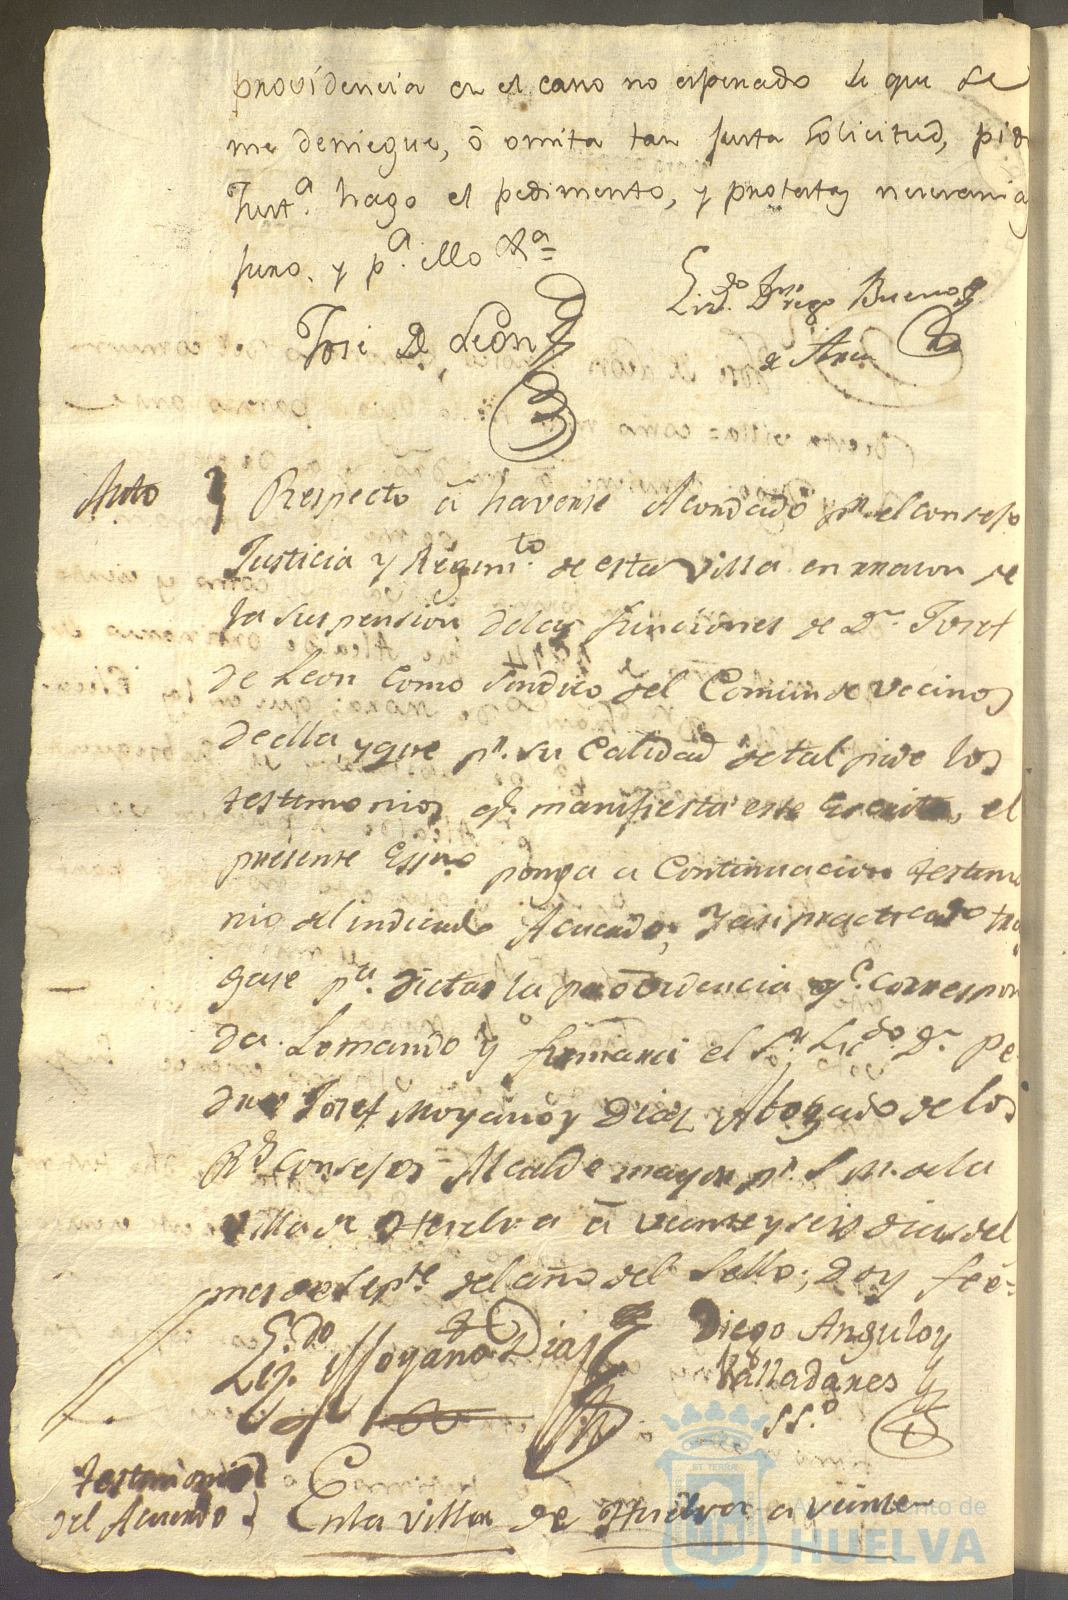 providencia en el caso no esperado de que se
me deniegue, ó omita tan justa solicitud, pido
Just.ª hago el pedimento, y protestas necesarias
juro. y p.ª ello &.ª
Josè De Leon
Liz.do Dn Diego Bueno
Auto } Respecto â haverse Acordado pr. el consejo
Justicia y Regim.to de esta Villa en razon de
la suspension de las funciones de Dn. Josef
de Leon como Sindico del Comun de vecinos
de ella, y que pr. su Calidad de tal pide los
testimonios qe. manifiesta este Escrito, el
presente Essno ponga a Continuacion testimo
nio del indicado Acuerdo, y asi practicado tray
gase pa. dictar la probidencia qe. correspon
da. Lo mando y firmará el Sr. Licdo. Dn. Pe
dro Josef Moyano y Diaz Abogado de los
Rs. Consejos Alcalde mayor pr. S. M. de la
Villa de Huelva â veinte y seis dias del
mes de Sepre. del año del Sello; Doy feé=
Liz.do Moyano Diaz
Diego Angulo y
Valladares
SS.no
testimonio
del Acuerdo } En la villa de Huelva a veinte
ST TERRÆ
Ayuntamiento de
HUELVA